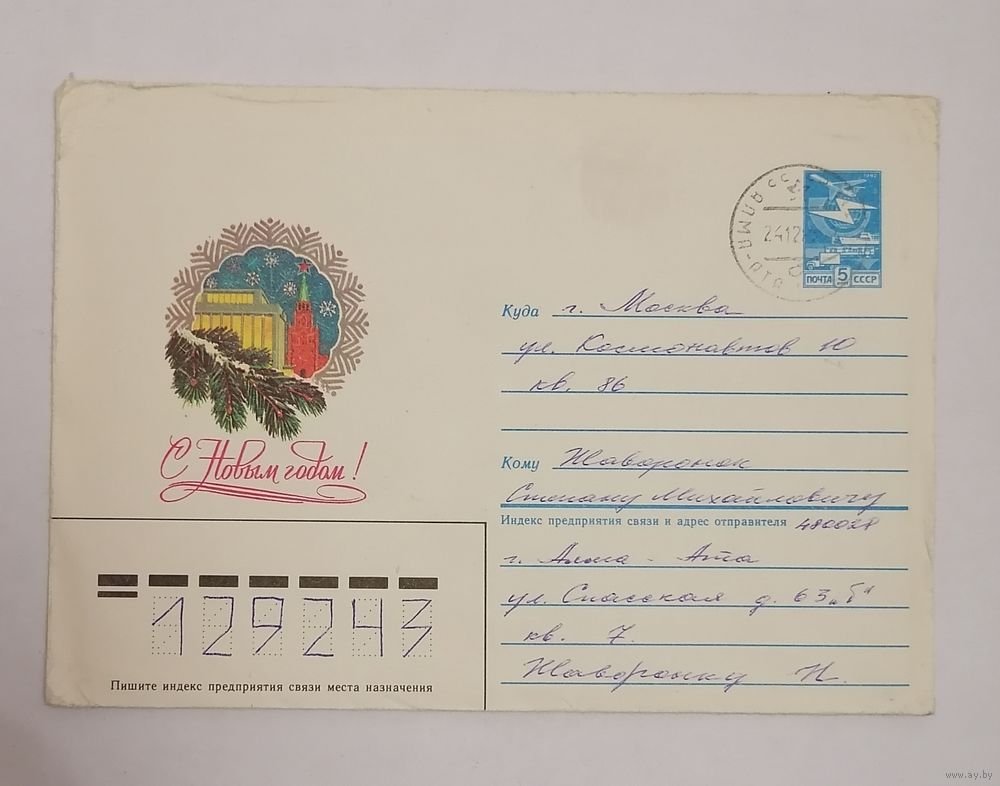 АЛМА-АТА
2412
1982
ПОЧТА 5 СССР
Куда г. Москва
ул. Космонавтов 10
кв. 86
Кому Жаворонок
Степану Михайловичу
Индекс предприятия связи и адрес отправителя 480027
г. Алма-Ата
ул. Спасская д. 63 „Б"
кв. 7.
Жаворонку Н.
С Новым годом!
129243
Пишите индекс предприятия связи места назначения
www.ay.by